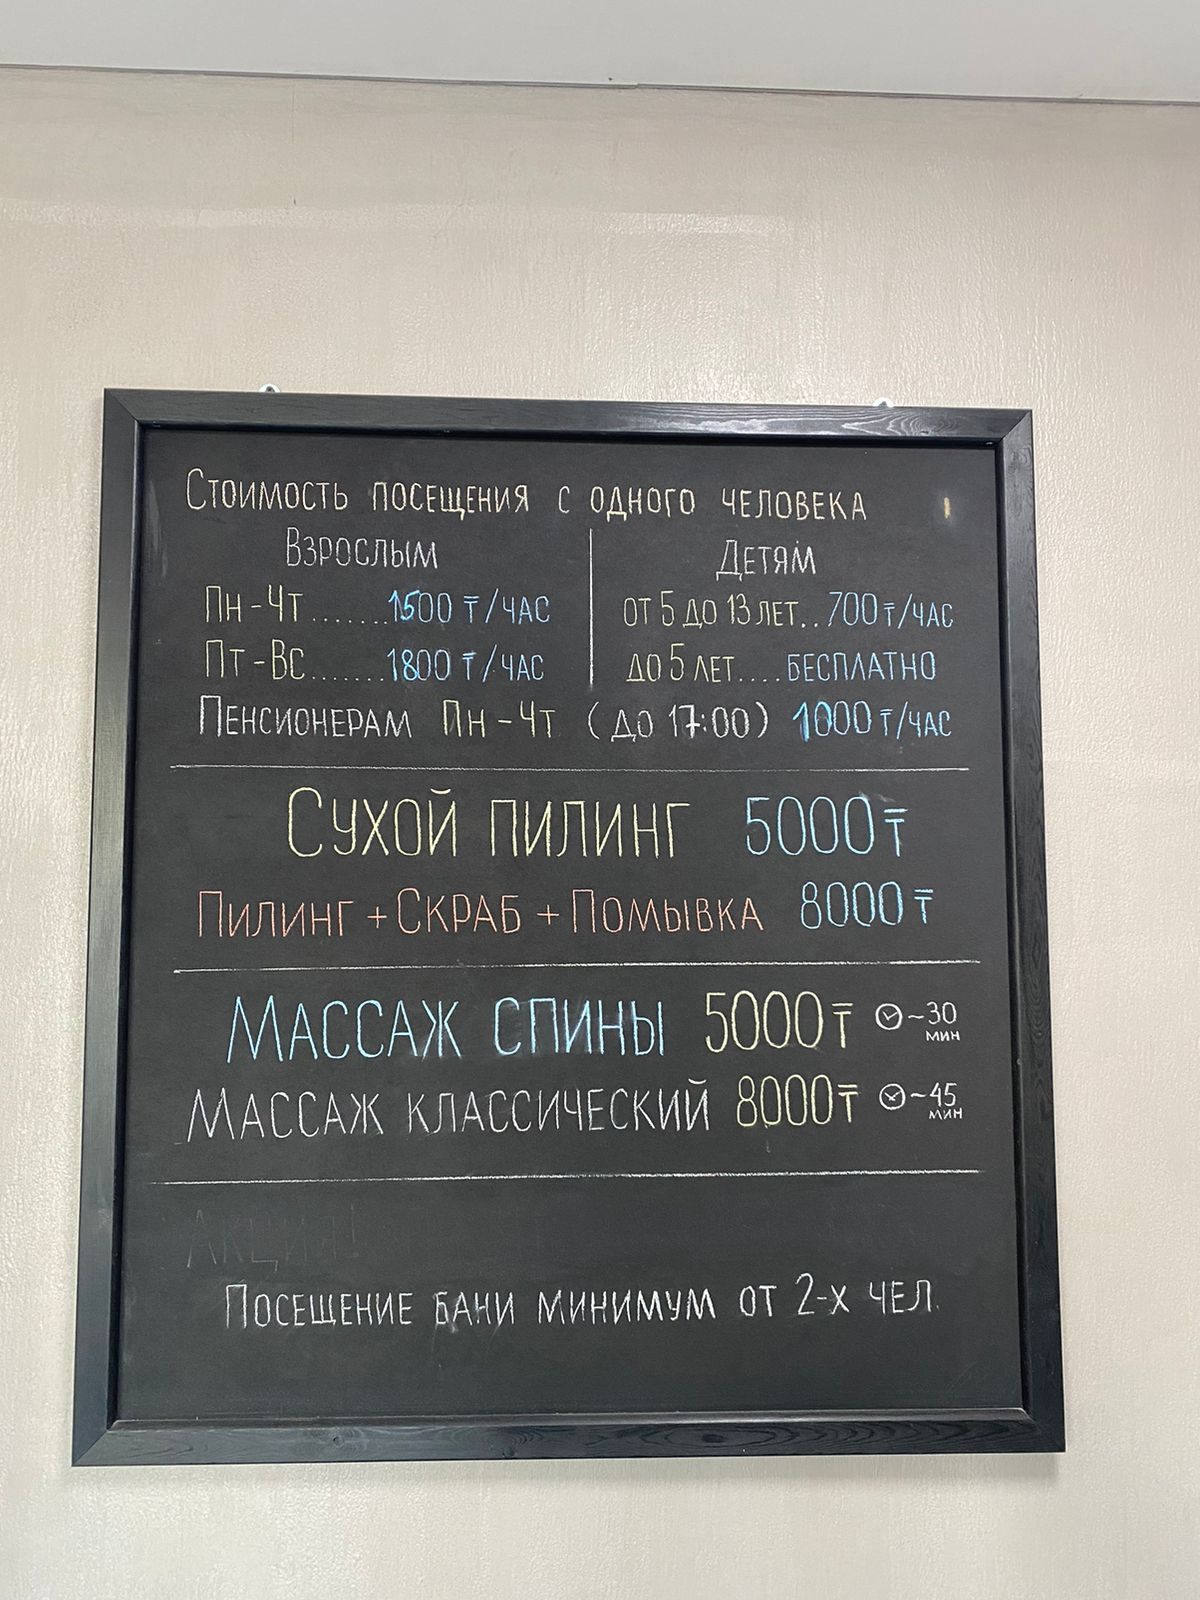 Стоимость посещения с одного человека
Взрослым
Пн-Чт.......1500 ₸/час
Пт-Вс.......1800 ₸/час
Детям
от 5 до 13 лет..700₸/час
до 5 лет....бесплатно
Пенсионерам Пн-Чт (до 17:00) 1000₸/час
Сухой пилинг 5000₸
Пилинг+Скраб+Помывка 8000₸
Массаж спины 5000₸ ~30 мин
Массаж классический 8000₸ ~45 мин
Акция!
Посещение бани минимум от 2-х чел.